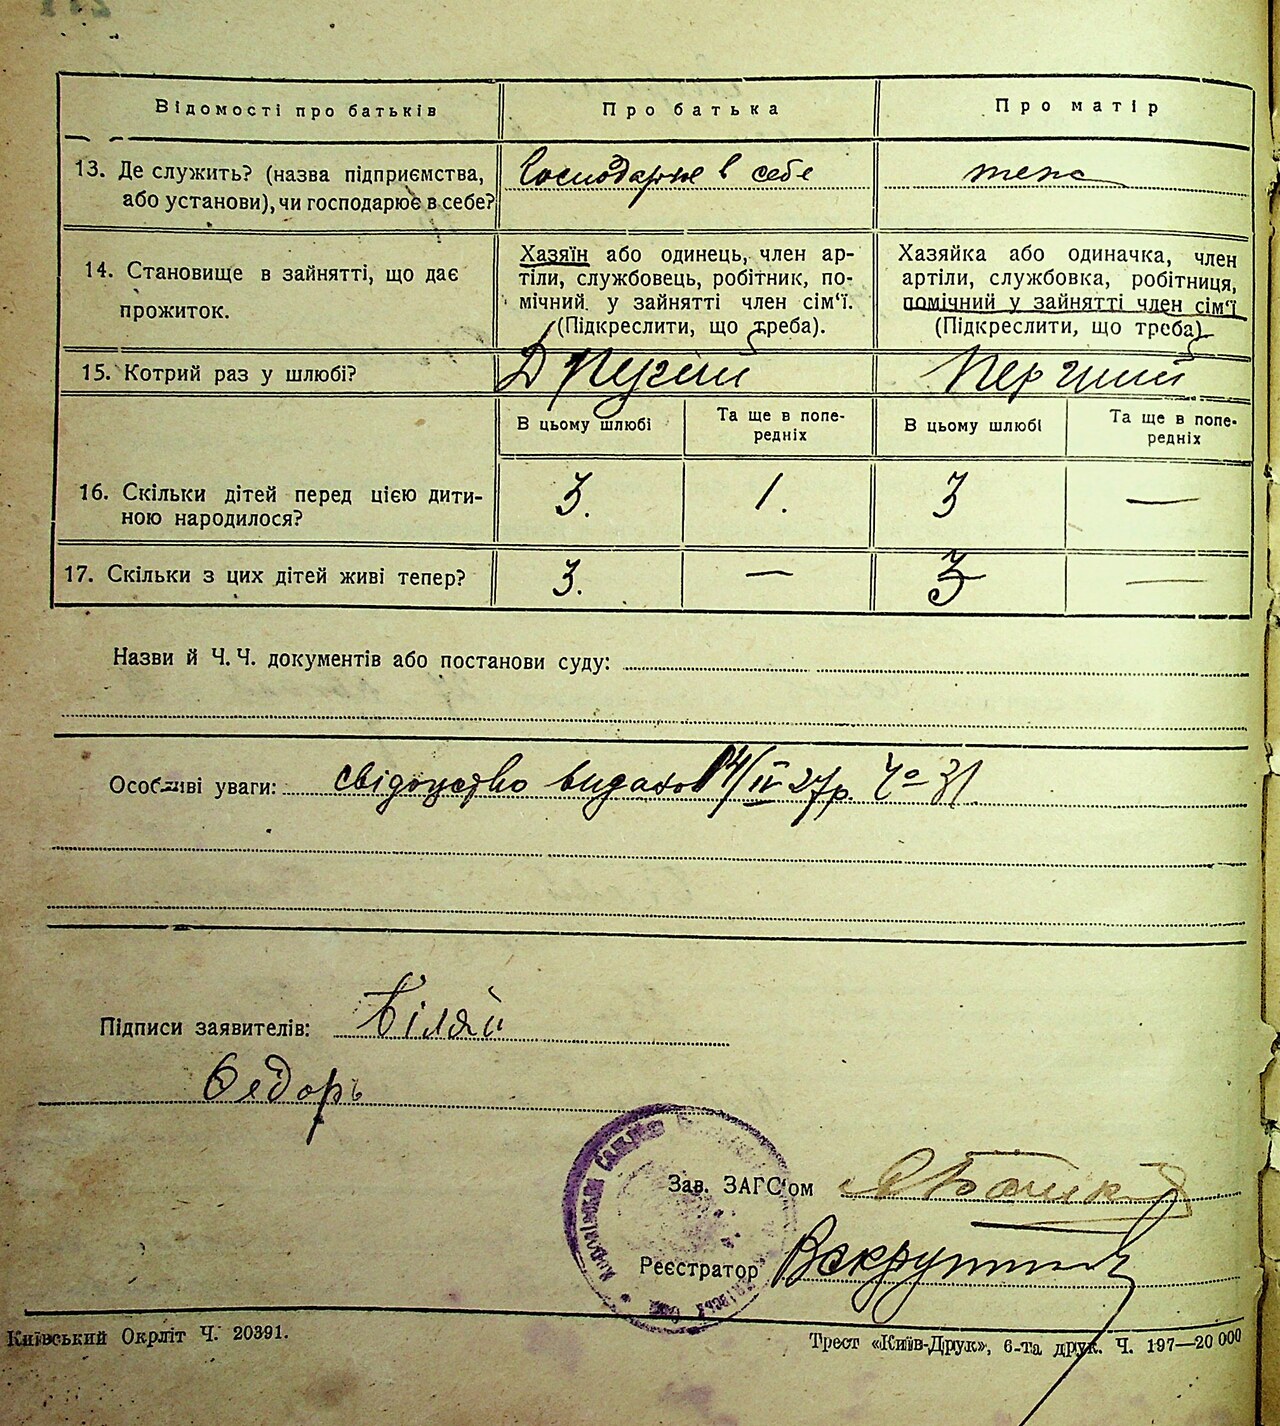 Відомості про батьків
Про батька
Про матір
13. Де служить? (назва підприємства,
або установи), чи господарює в себе?
Господарює в себе
теж
14. Становище в зайнятті, що дає
прожиток.
Хазяїн або одинець, член ар-
тіли, службовець, робітник, по-
мічний у зайнятті член сім‘ї.
(Підкреслити, що треба).
Хазяйка або одиначка, член
артіли, службовка, робітниця,
помічний у зайнятті член сім‘ї
(Підкреслити, що треба)
15. Котрий раз у шлюбі?
Другий
Перший
В цьому шлюбі
Та ще в попе-
редніх
В цьому шлюбі
Та ще в попе-
редніх
16. Скільки дітей перед цією дити-
ною народилося?
3.
1.
3
—
17. Скільки з цих дітей живі тепер?
3.
—
3
—
Назви й Ч. Ч. документів або постанови суду:
Особливі уваги: свідоцтво видано 14/IV 27р. Чо 31
Підписи заявителів: Біляй
Федорь
Зав. ЗАГС'ом
Реєстратор
Київський Окрліт Ч. 20391.
Трест «Київ-Друк», 6-та друк. Ч. 197—20 000